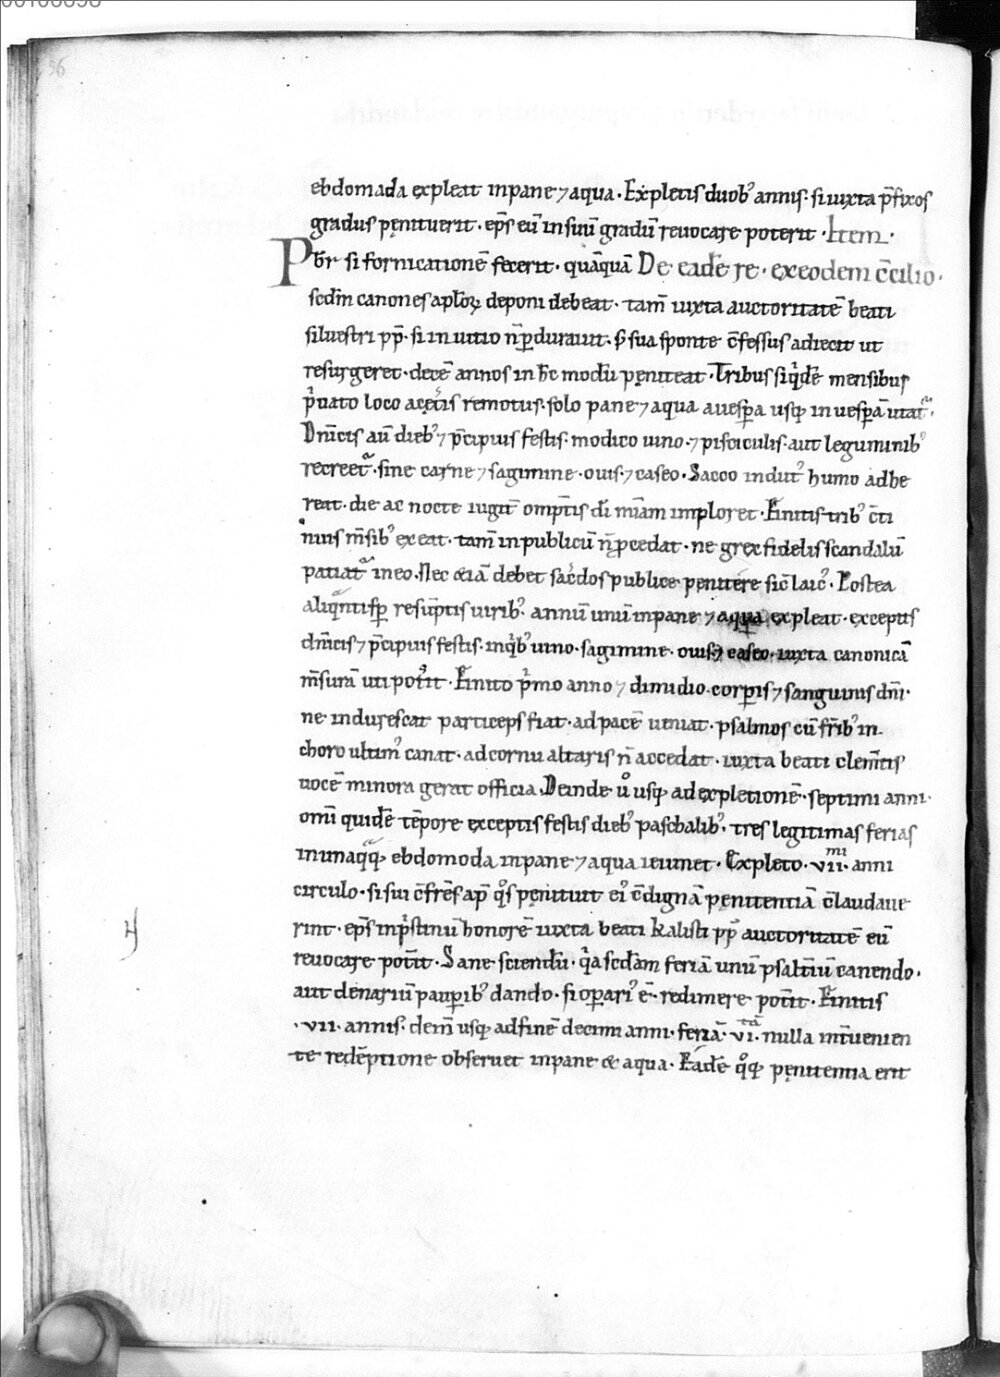 56
ebdomada expleat inpane ⁊ aqua · Expletis duob᾽ annis · si iuxta p̄fixos
gradus pęnituerit · ep̄s eū in suū gradū reuocare poterit · Item ·
Pbr̄ si fornicationē fecerit · quāquā De eadē re · ex eodem c̄cilio ·
scdm̄ canones apl̄oꝝ deponi debeat · tam̄ iuxta auctoritatē beati
siluestri pp̄ · si in uitio n̄ ꝑdurauit · s; sua sponte c̄fessus adiecit ut
resurgeret · decē annos in h̄c modū pęniteat · Tribus siq̇dē mensibus
ṗuato loco a cęt̄is remotus · solo pane ⁊ aqua a uesꝑa usq; in uesꝑā utat᷑ ·
Dn̄icis aū dieb᾽ ⁊ p̄cipuis festis · modico uino · ⁊ pisciculis · aut leguminib᾽
recreet᷑ · sine carne ⁊ sagimine · ouis · ⁊ caseo · Sacco indut᾽ humo adhe
reat · die ac nocte iugit̄ omp̄tis dī mīam imploret · Finitis trib᾽ c̄ti
nuis m̄sib᾽ exeat · tam̄ in publicū n̄ p̄cedat · ne grex fidelis scandalū
patiat᷑ in eo · Nec etiā debet sac̄dos publice penitere sic̄ laic᾽ · Postea
aliqͣntisꝑ resūptis uirib᾽ · annū unū inpane ⁊ aqua expleat · exceptis
dn̄icis ⁊ p̄cipuis festis · in qͥb᾽ uino · sagimine · ouis ⁊ caseo · iuxta canonicā
m̄surā uti pot̄it · Finito pͥmo anno ⁊ dimidio · corꝑis ⁊ sanguinis dn̄i ·
ne indurescat particeps fiat · ad pacē ueniat · psalmos cū fr̄ib᾽ in
choro ultim᾽ canat · ad cornu altaris n̄ accedat · iuxta beati clem̄tis
uocē minora gerat officia · Deinde ů usq; ad expletionē · septimi anni ·
omī quidē tēpore exceptis festis dieb᾽ paschalib᾽ · tres legitimas ferias
in unaqͣq; ebdomoda inpane ⁊ aqua ieiunet · Expleto · vii ᵐⁱ · anni
circulo · si sui c̄frēs ap̄ qͦs pęnituit ei᾽ c̄dignā pęnitentiā c̄laudaue
rint · ep̄s in pͥstinū honorē iuxta beati Kalisti pp̄ auctoritatē eū
reuocare pot̄it · Sane sciendū · qͥa scdam feriā unū psalt̄iū canendo ·
aut denariū pauꝑib᾽ dando · si oꝑari᾽ ē · redimere pot̄it · Finitis
· vii · annis · deīn usq; ad finē decimi anni · feriā · vi ᵗᵃ · nulla int̄uenien
te redēptione obseruet inpane & aqua · Eadē qͦq; pęnitentia erit